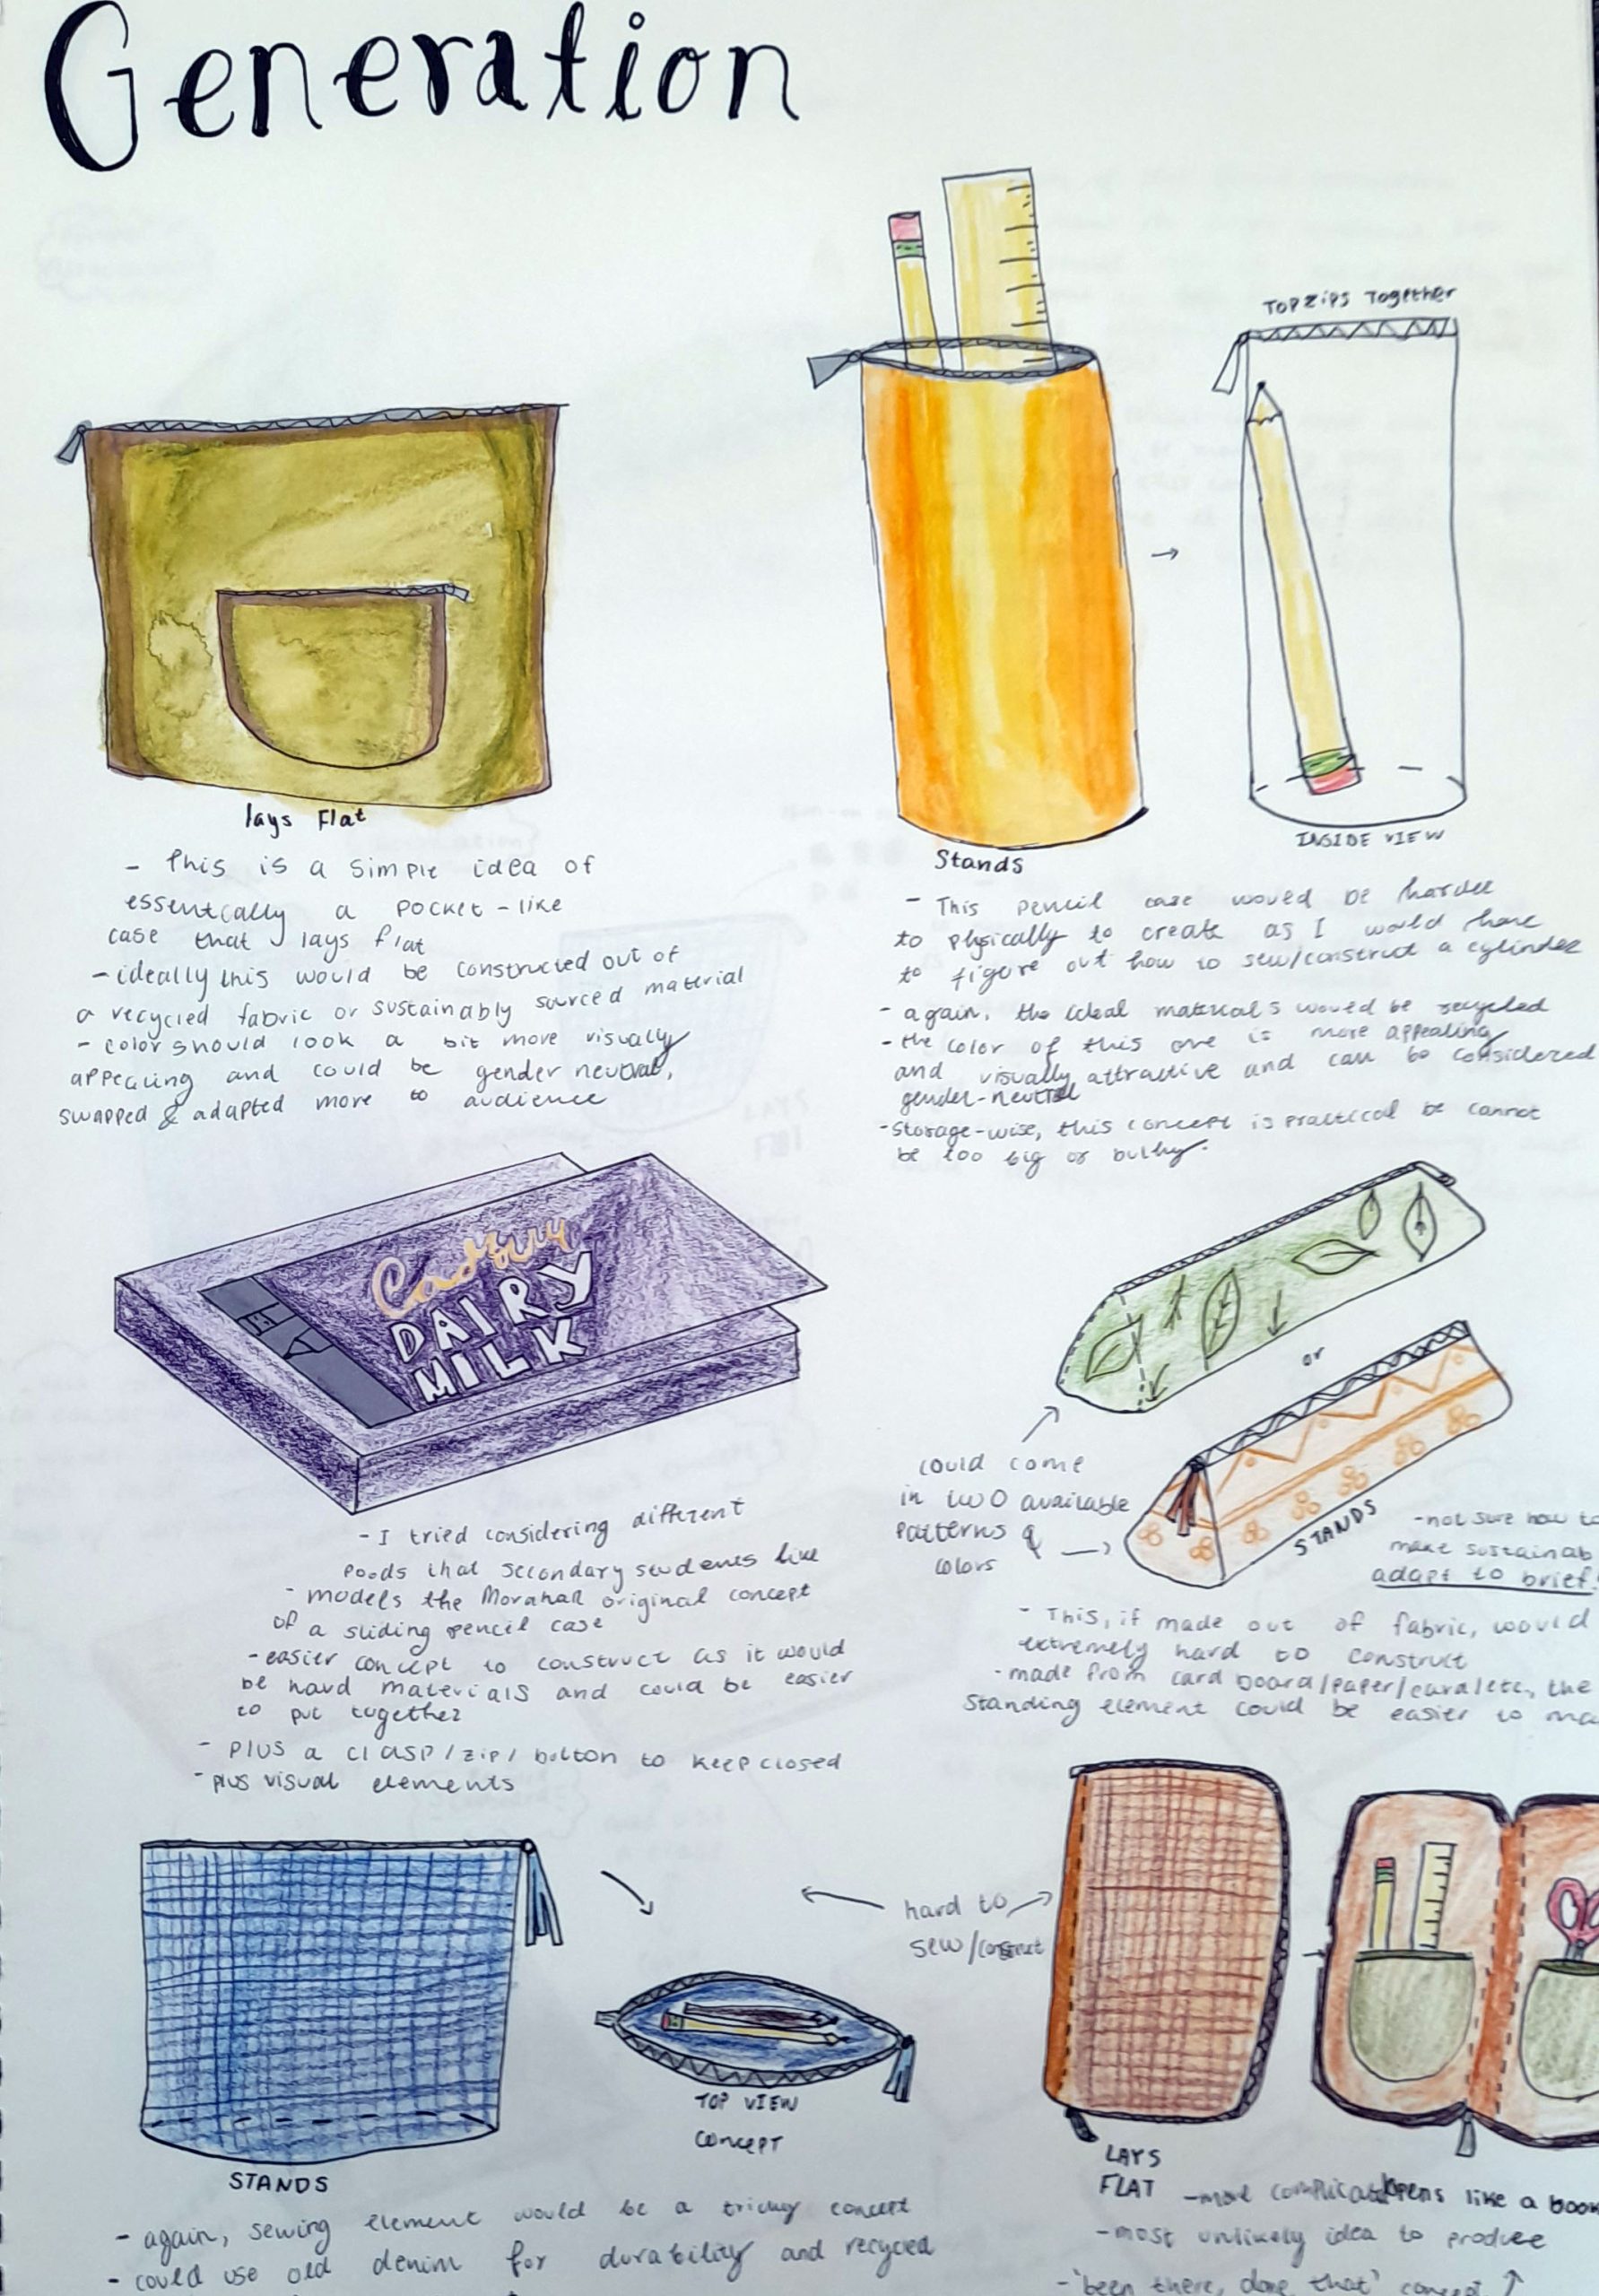 Generation
lays Flat
- This is a simple idea of
essentcally a pocket-like
case that lays flat
- ideally this would be constructed out of
a recycled fabric or sustainably sourced material
- color should look a bit more visualy
appealing and could be gender neutral,
swapped & adapted more to audience
TOP ZIPS TOgether
INSIDE VIEW
Stands
- This pencil case would be harder
to physically to create as I would have
to figure out how to sew/construct a cylinder
- again, the ideal materials would be recycled
- the color of this one is more appealing
and visually attractive and can be considered
gender-neutral
- Storage-wise, this concept is practical be cannot
be too big or bulky.
Cadbury
DAIRY
MILK
- I tried considering different
foods that secondary students like
- models the original concept
of a sliding pencil case
- easier concept to construct as it would
be hard materials and could be easier
to put together
- plus a clasp/zip/button to keep closed
- plus visual elements
or
could come
in two available
patterns &
colors
STANDS
- not sure how to
make sustainab
adapt to brief!
- This, if made out of fabric, would
extremely hard to construct
- made from card board/paper/card/etc, the
standing element could be easier to ma
hard to
sew/construct
TOP VIEW
CONCEPT
STANDS
- again, sewing element would be a tricky concept
- could use old denim for durability and recycled
LAYS
FLAT
- more complicated opens like a book
- most unlikely idea to produce
- 'been there, done that' concept